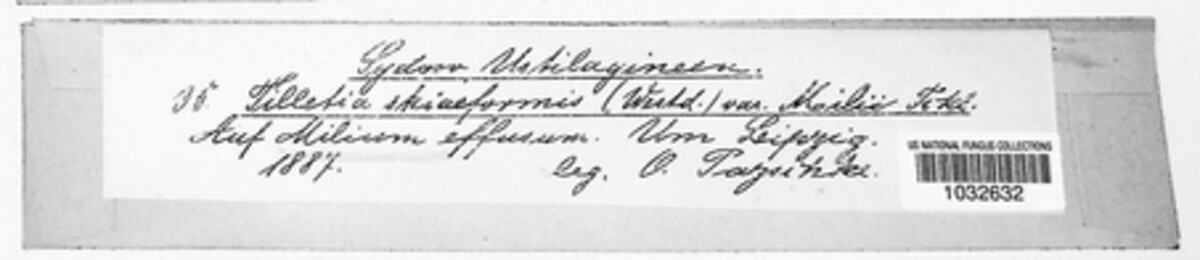 Sydow Ustilagineen.
35. Tilletia striaeformis (Westd.) var. Milii Fckl.
Auf Milium effusum. Um Leipzig.
1887. leg. O. Pazschke.
US NATIONAL FUNGUS COLLECTIONS
1032632